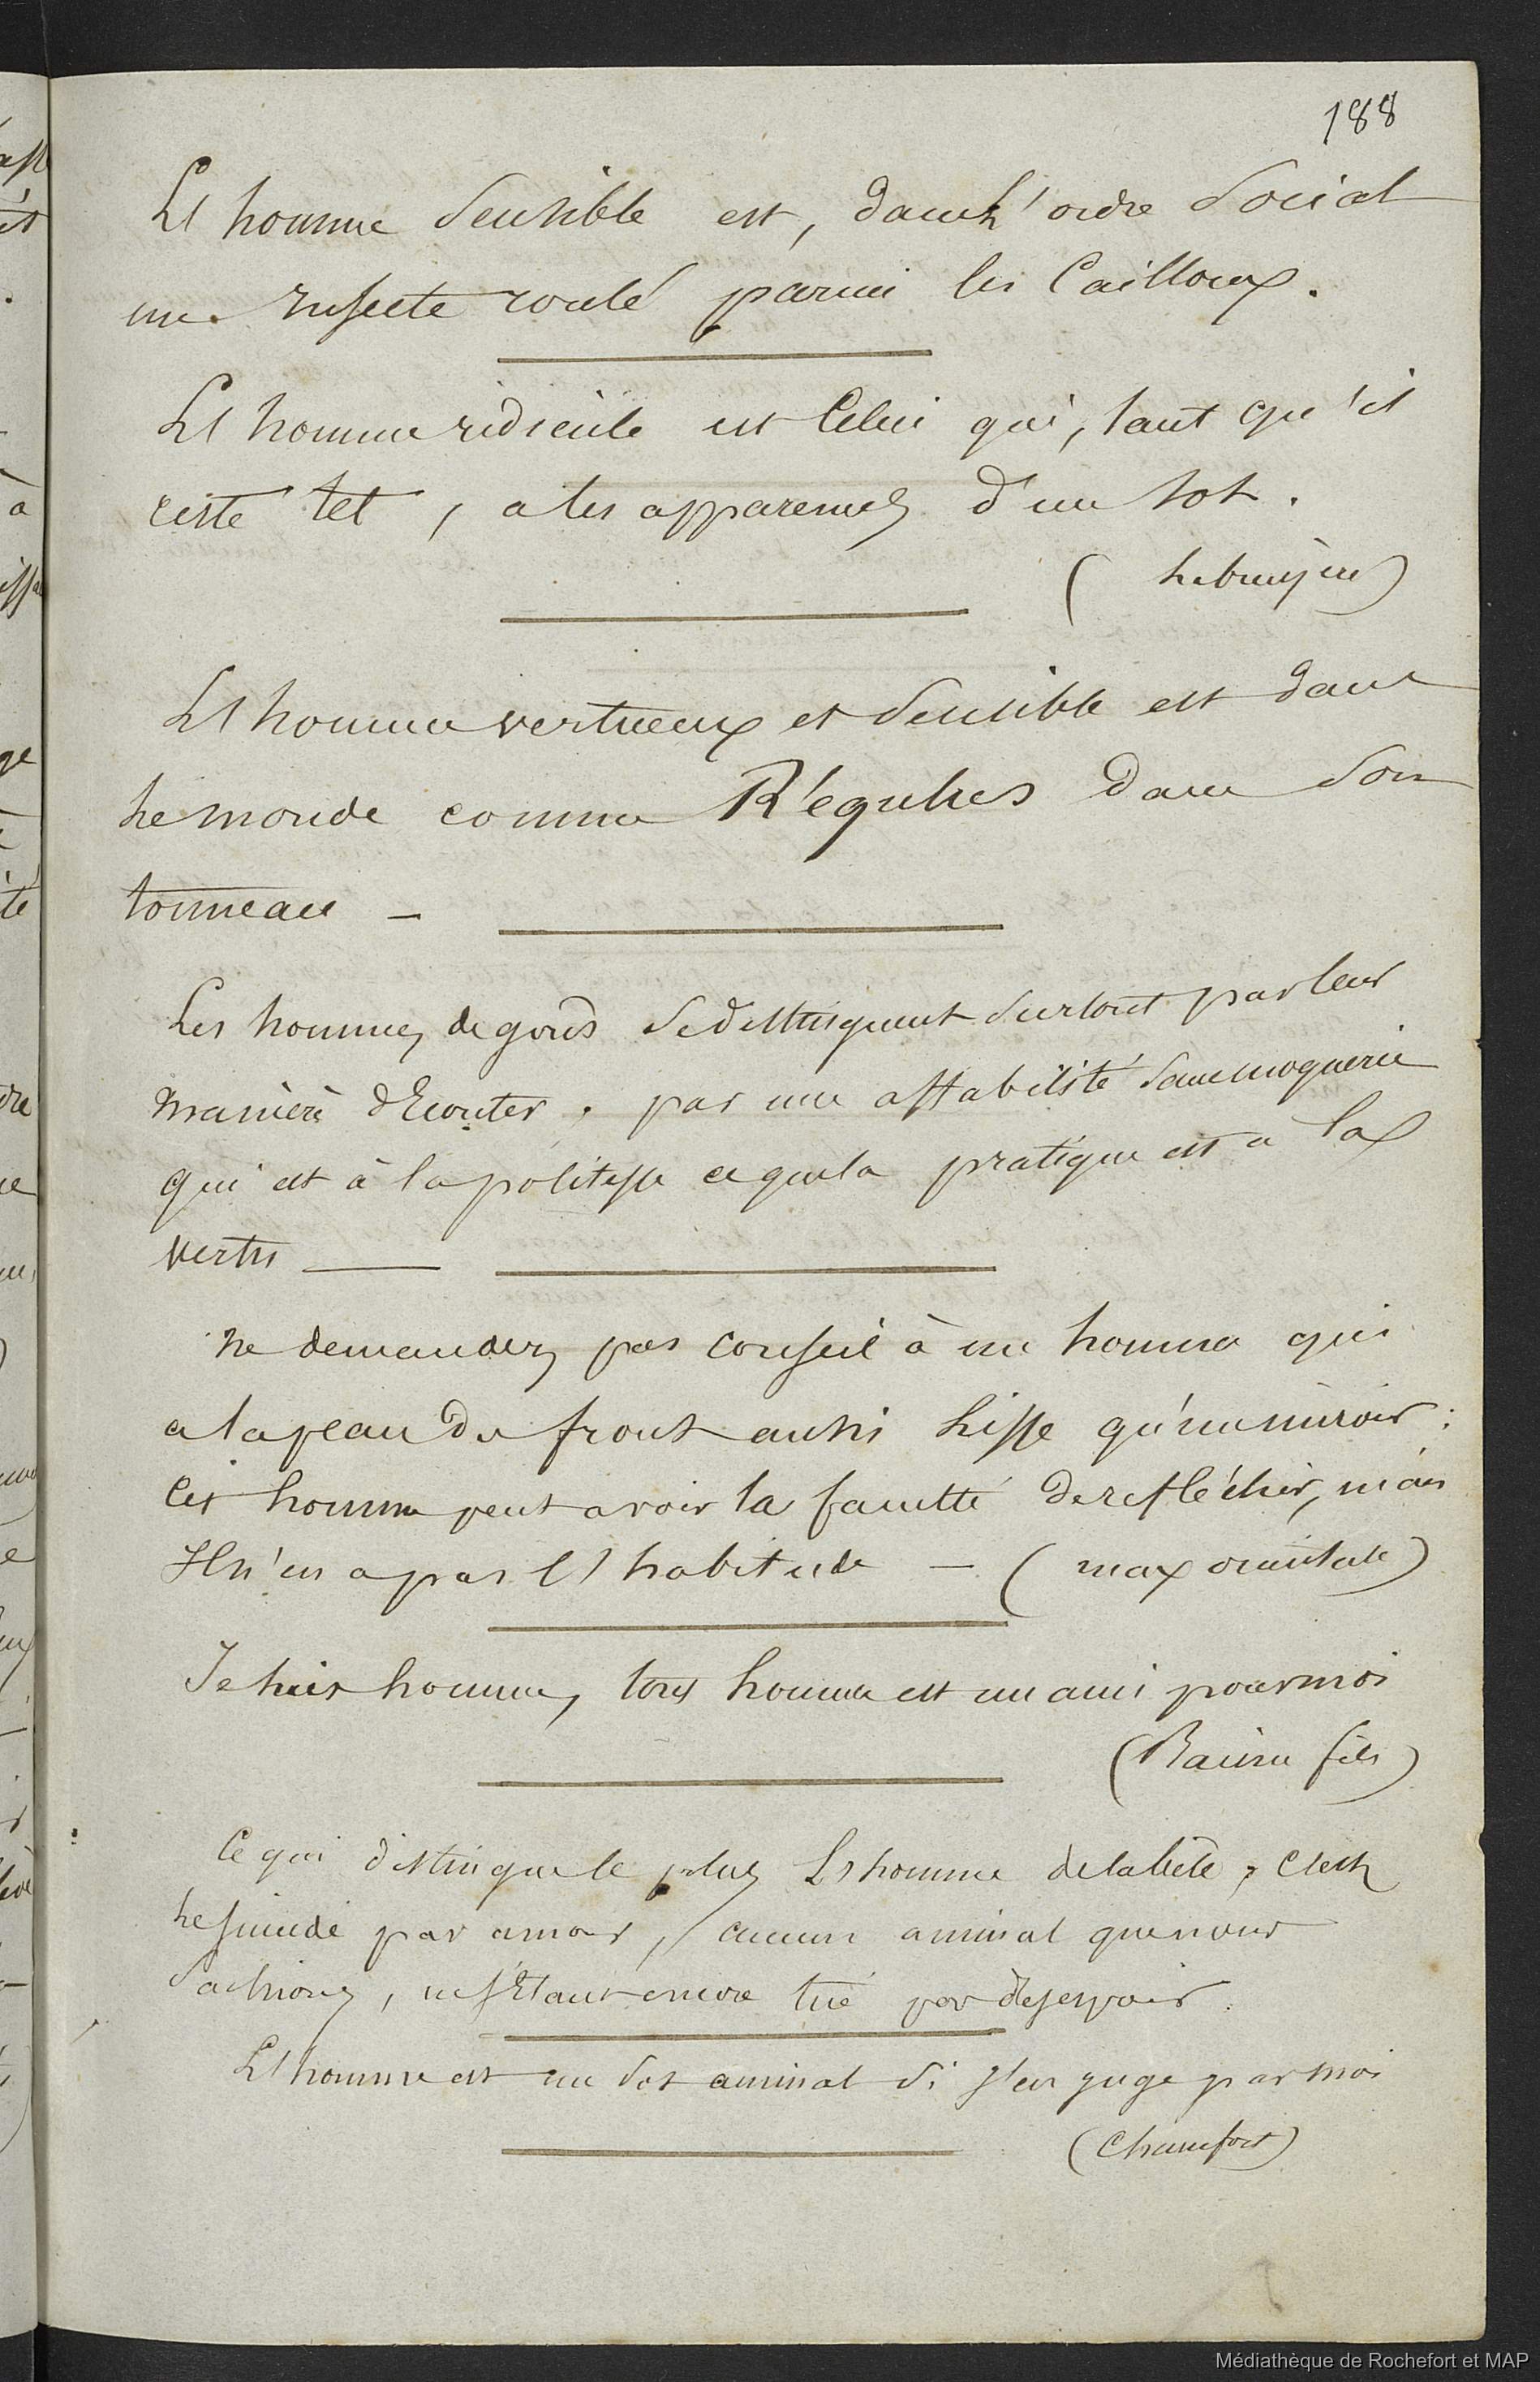 188
L'homme sensible est, dans l'ordre social
un insecte roulé parmi les Cailloux.
L'homme ridicule est Celui qui, tant qu'il
reste tel, a les apparences d'un sot.
(Labruyère)
L'homme vertueux et sensible est dans
le monde comme Régulus dans son
tonneau —
Les hommes de goûs se distinguent surtout par leur
manière d'Ecouter, par une affabilité sans moquerie
qui est à la politesse ce que la pratique est a la
vertu —
ne demandez pas conseil à un homme qui
a la peau du front aussi lisse qu'un miroir:
Cet homme peut avoir la faculté de refléchir, mais
Il n'en a pas l'habitude — (max )
Je suis homme, tout homme est un ami pour moi
(Racine fils)
Ce qui distingue le plus L'homme de la bête, c'est
le suicide par amour, aucun animal que nous
sachions, ne s'Etant encore tué par desespoir.
L'homme est un sot animal si j'en juge par moi
(Chamfort)
Médiathèque de Rochefort et MAP